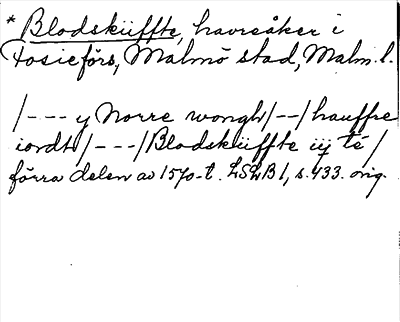 * Blodskiiffte, havreåker i
Fosie förs, Malmö stad, Malm. l.
/--- y Norre wongh/--/hauffre
iordt/---/Blodskiiffte iij té/
förra delen av 1570-t. LSLB 1, s. 433. orig.